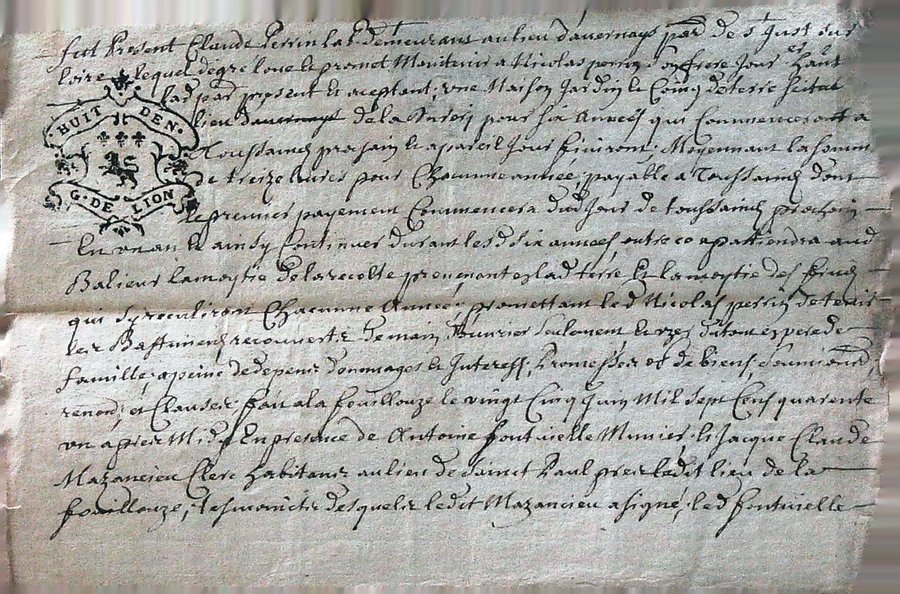 fut Present Claude Perrin lab. demeurant au lieu davernay par. de St Just sur
loire, lequel degre loue et promet Maintenir a Nicolas perrin son frere Jour.er Habt
lad par. present et aceptant, une Maison Jardin et Coing de terre scitué
lieu de la pour six Années qui Commenceront a
Toussainct prochain et a pareil Jour finiront, Moyennant la somme
de treize livres pour Chacunne année, payable a Toussainct dont
le premier payement Commencera dud Jour de toussainct prochain
En un an et ainsy Continuer durant lesd six années, outre ce apartiendra aud
Bailleur la moytié de la recolte provenant es lad terre et la moytié des fruicts
qui Sy recuilliront Chacunne Année; promettant led Nicolas perrin de tenir
les Bastimens recouverts de main Douvrier seulement et uzer du tout en pere de
famille, a peine de depens dommages et Interests, Promesses obl de biens, soumissions,
renon; et Clauses, fait a la fouillouze le vingt Cinq Juin Mil sept Cens quarente
un apres Midy En presence de Antoine fontvielle Munier, et Jacque Claude
Mazancieu Clerc habitans au lieu de Sainct Paul pres ledit lieu de la
fouillouze, tesmoincts desquels ledit Mazancieu a signé, led fontvielle
HUIT DEN.
G. DE LION